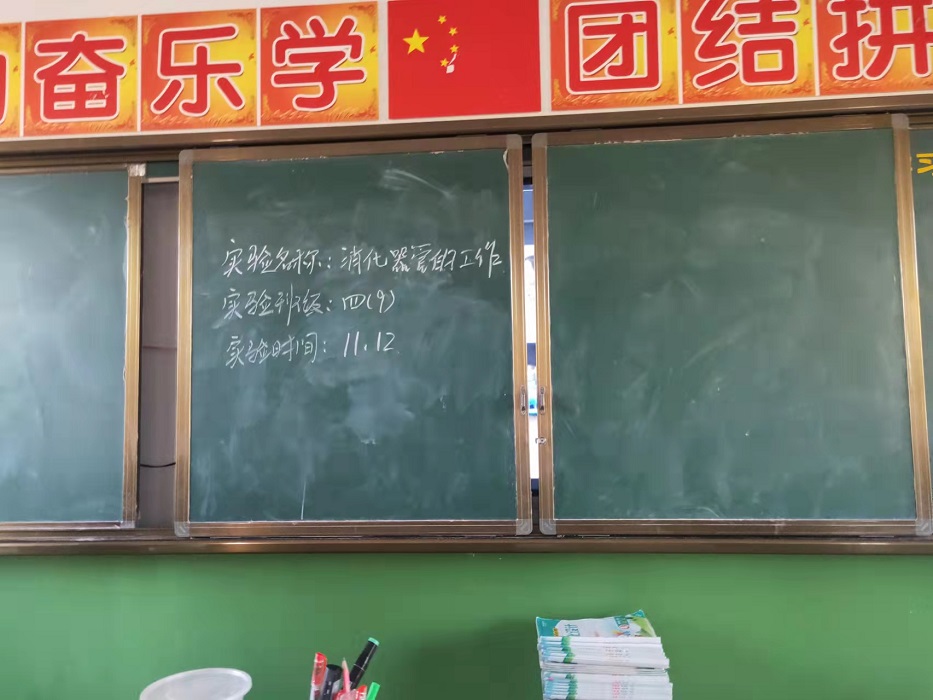 奋乐学 团结拼
实验名称：消化器官的工作
实验班级：四(9)
实验时间：11.12